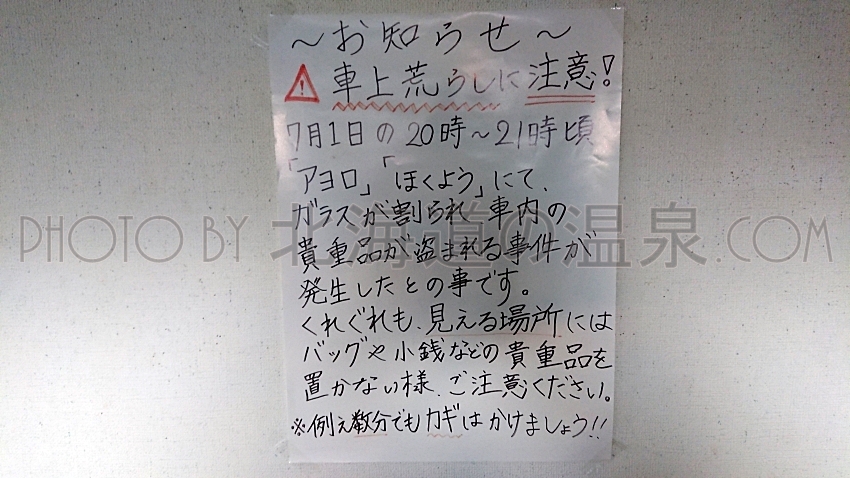 ～お知らせ～
⚠車上荒らしに注意!
7月1日の20時～21時頃
「アヨロ」「ほくよう」にて、
ガラスが割られ車内の
貴重品が盗まれる事件が
発生したとの事です。
くれぐれも、見える場所には
バッグや小銭などの貴重品を
置かない様、ご注意ください。
※例え数分でもカギはかけましょう!!
PHOTO BY 北海道の温泉.COM